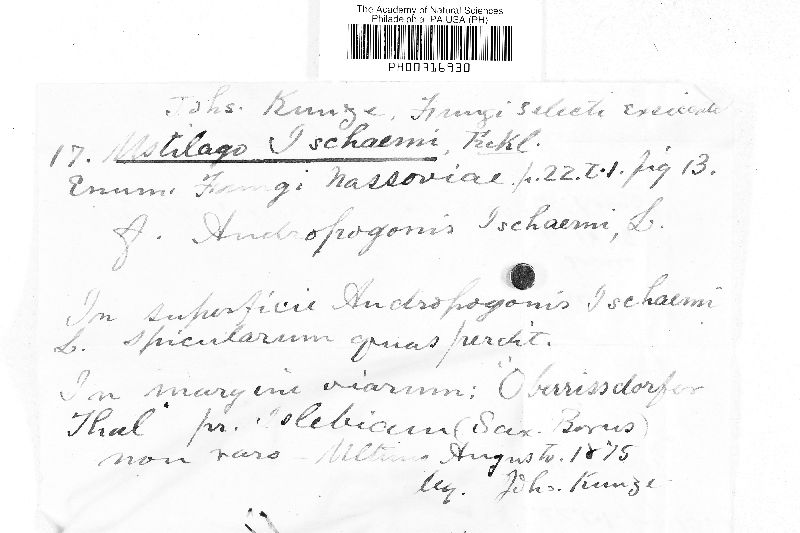 The Academy of Natural Sciences
Philadelphia PA USA (PH)
PH00316930
Johs. Kunze, Fungi selecti exsiccati
17. Ustilago Ischaemi, Fckl.
Enum. Fungi Nassoviae. p. 22. t. 1. fig 13.
f. Andropogonis Ischaemi, L.
In superficie Andropogonis Ischaemi
L. spicularum quas perdit.
In margine viarum; "Oberrissdorfer
Thal" pr. Islebiam (Sax. Borus)
non raro - Augusto. 1875
leg. Johs. Kunze